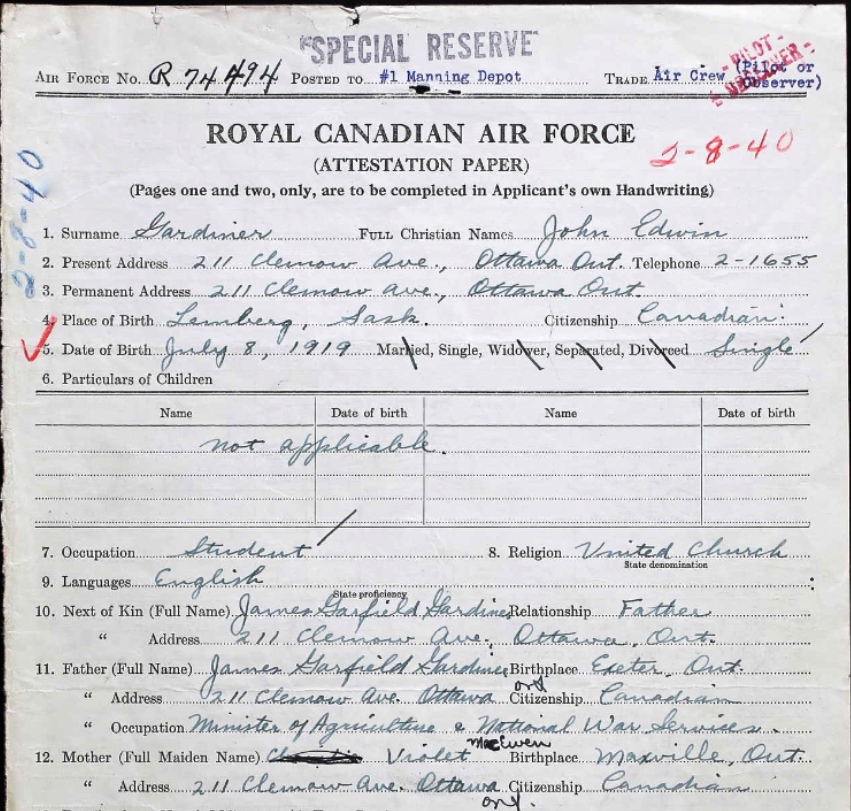 "SPECIAL RESERVE"
AIR FORCE NO. R 74494 POSTED TO #1 Manning Depot TRADE Air Crew (Pilot or Observer)
ROYAL CANADIAN AIR FORCE
2-8-40
(ATTESTATION PAPER)
(Pages one and two, only, are to be completed in Applicant's own Handwriting)
2-8-40
1. Surname Gardiner FULL Christian Names John Edwin
2. Present Address 211 Clemow Ave., Ottawa Ont. Telephone 2-1655
3. Permanent Address 211 Clemow Ave., Ottawa Ont.
4. Place of Birth Lemberg, Sask. Citizenship Canadian
5. Date of Birth July 8, 1919 Married, Single, Widower, Separated, Divorced Single
6. Particulars of Children
Name Date of birth Name Date of birth
not applicable.
7. Occupation Student 8. Religion United Church
State denomination
9. Languages English
State proficiency
10. Next of Kin (Full Name) James Garfield Gardiner Relationship Father
" Address 211 Clemow Ave., Ottawa, Ont.
11. Father (Full Name) James Garfield Gardiner Birthplace Exeter, Ont.
" Address 211 Clemow Ave. Ottawa Ont Citizenship Canadian
" Occupation Minister of Agriculture & National War Services.
12. Mother (Full Maiden Name) Violet MacEwen Birthplace Maxville, Ont.
" Address 211 Clemow Ave. Ottawa Ont. Citizenship Canadian